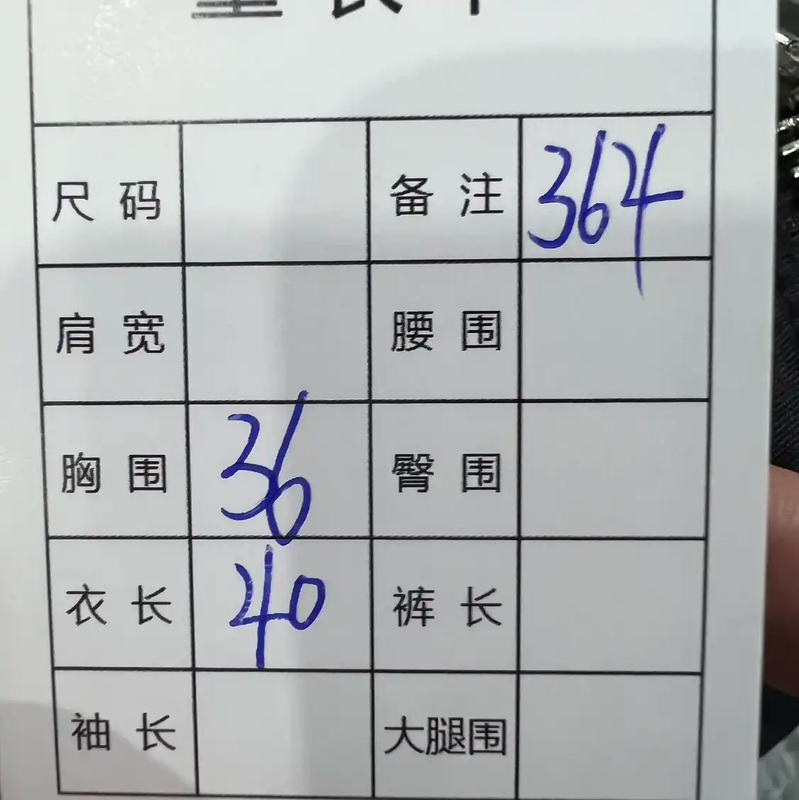 尺码 备注 364
肩宽 腰围
胸围 36 臀围
衣长 40 裤长
袖长 大腿围